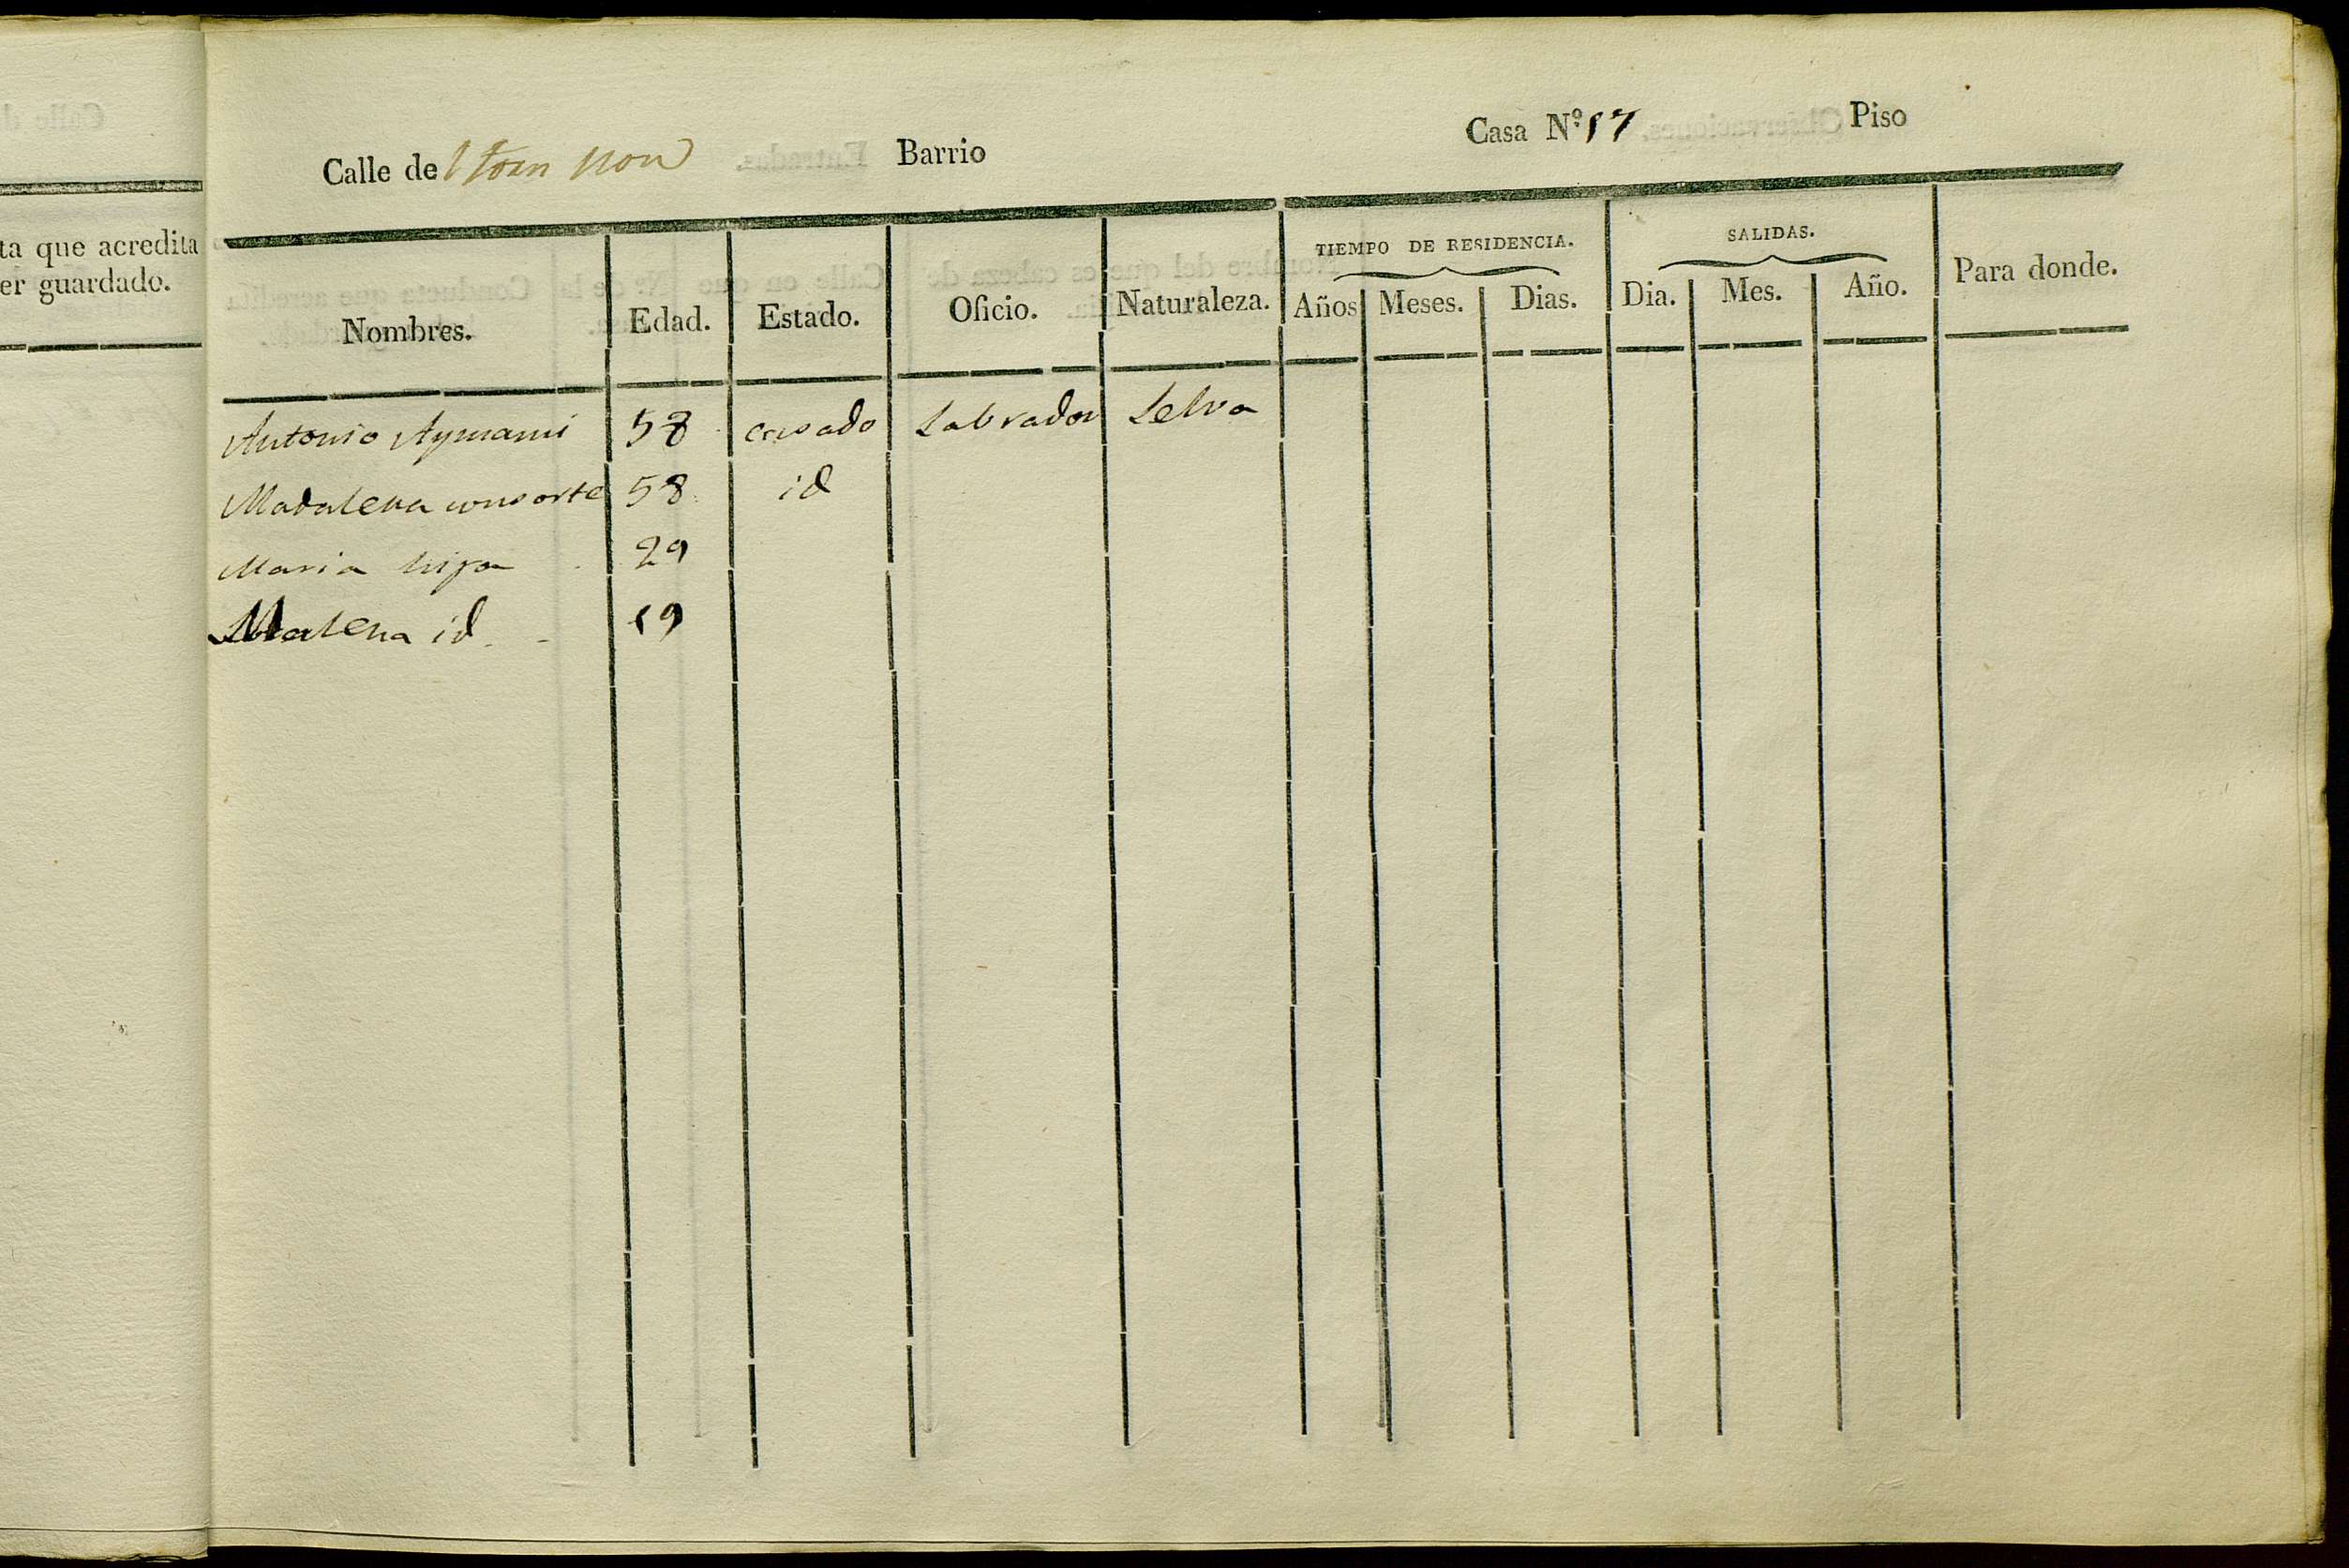 ta que acredita
er guardado.
Calle de Barrio Casa Nº 17 Piso
TIEMPO DE RESIDENCIA. SALIDAS.
Nombres. Edad. Estado. Oficio. Naturaleza. Años Meses. Dias. Dia. Mes. Año. Para donde.
Antonio Aymami 58 casado Labrador Selva
Madalena consorte 58 id
Maria hija 29
id 19